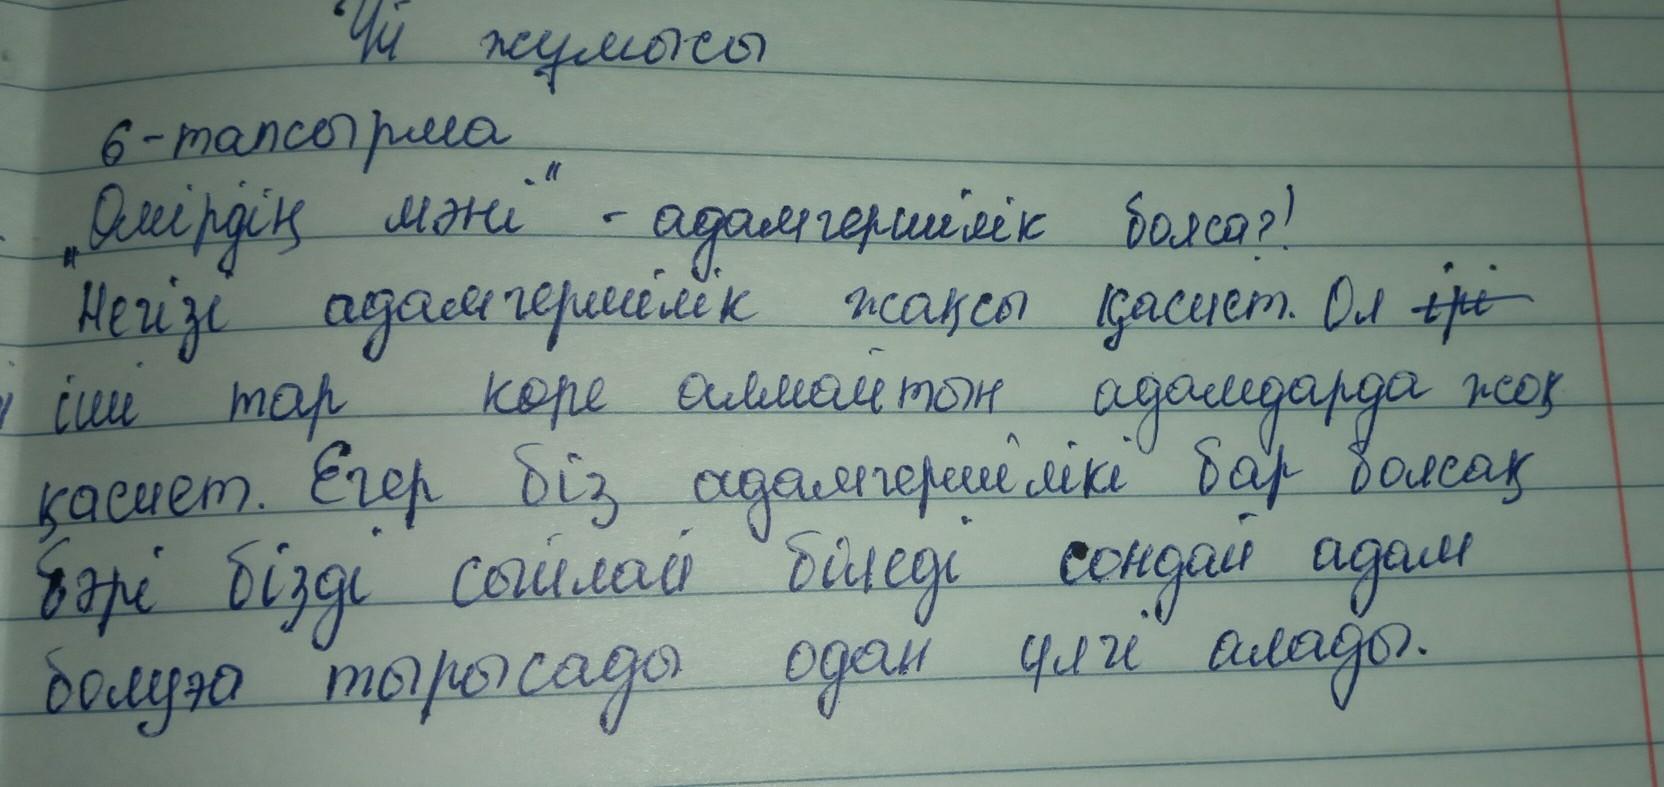 Үй жұмысы
6-тапсырма
„Өмірдің мәні" - адамгершілік болса?!
Негізі адамгершілік жақсы қасиет. Ол
іші тар көре алмайтын адамдарда жоқ
қасиет. Егер біз адамгершілікі бар болсақ
бәрі бізді сыйлай біледі сондай адам
болуға тырысады одан үлгі алады.